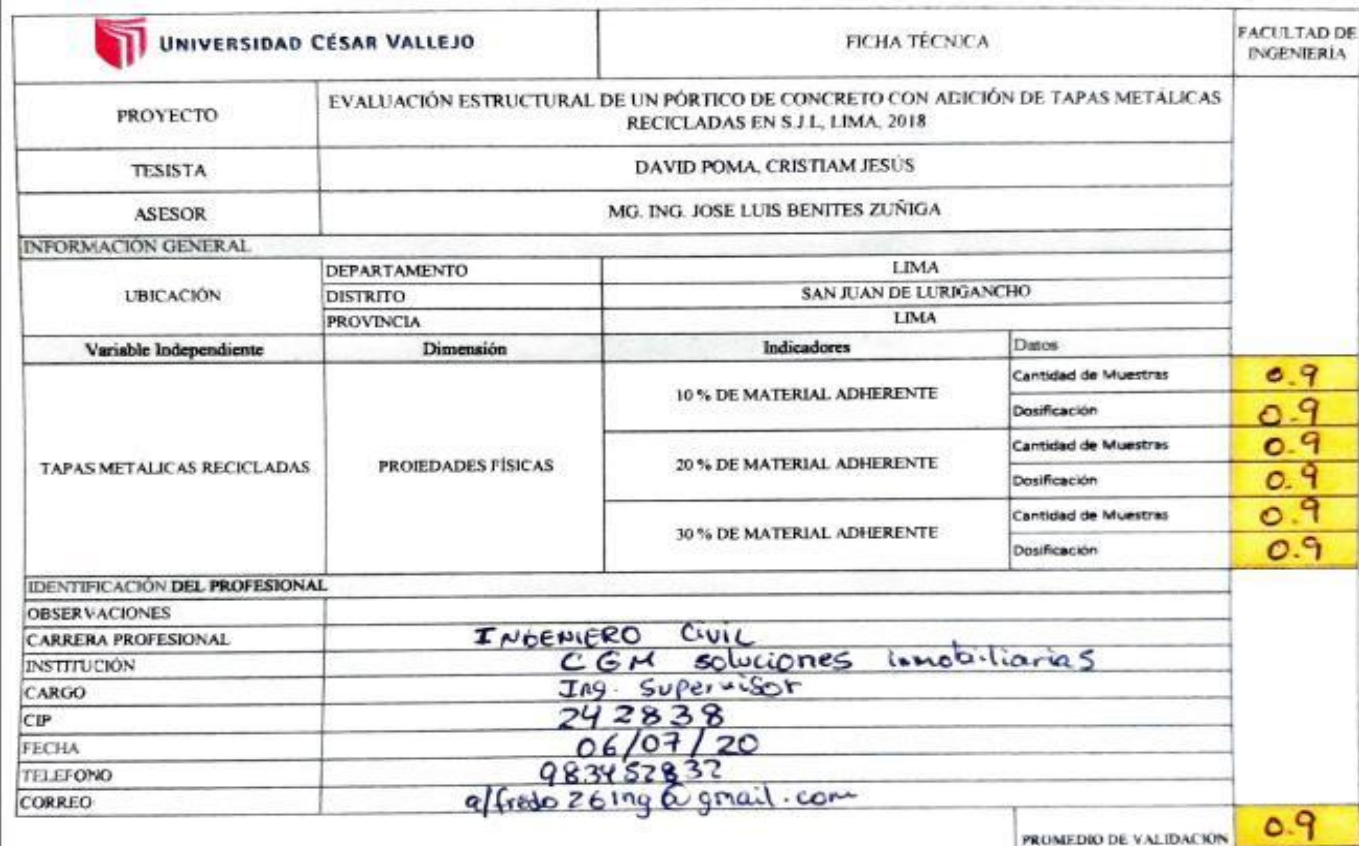 UNIVERSIDAD CÉSAR VALLEJO FICHA TÉCNICA FACULTAD DE INGENIERÍA
PROYECTO EVALUACIÓN ESTRUCTURAL DE UN PÓRTICO DE CONCRETO CON ADICIÓN DE TAPAS METÁLICAS
RECICLADAS EN S.J.L, LIMA, 2018
TESISTA DAVID POMA, CRISTIAM JESÚS
ASESOR MG. ING. JOSE LUIS BENITES ZUÑIGA
INFORMACIÓN GENERAL
UBICACIÓN
DEPARTAMENTO LIMA
DISTRITO SAN JUAN DE LURIGANCHO
PROVINCIA LIMA
Variable Independiente Dimensión Indicadores Datos
TAPAS METALICAS RECICLADAS PROIEDADES FÍSICAS
10 % DE MATERIAL ADHERENTE
Cantidad de Muestras 0.9
Dosificación 0.9
20 % DE MATERIAL ADHERENTE
Cantidad de Muestras 0.9
Dosificación 0.9
30 % DE MATERIAL ADHERENTE
Cantidad de Muestras 0.9
Dosificación 0.9
IDENTIFICACIÓN DEL PROFESIONAL
OBSERVACIONES
CARRERA PROFESIONAL INGENIERO CIVIL
INSTITUCIÓN CGM soluciones inmobiliarias
CARGO Ing. Supervisor
CIP 242838
FECHA 06/07/20
TELEFONO 983452832
CORREO alfredo26ing@gmail.com
PROMEDIO DE VALIDACIÓN 0.9